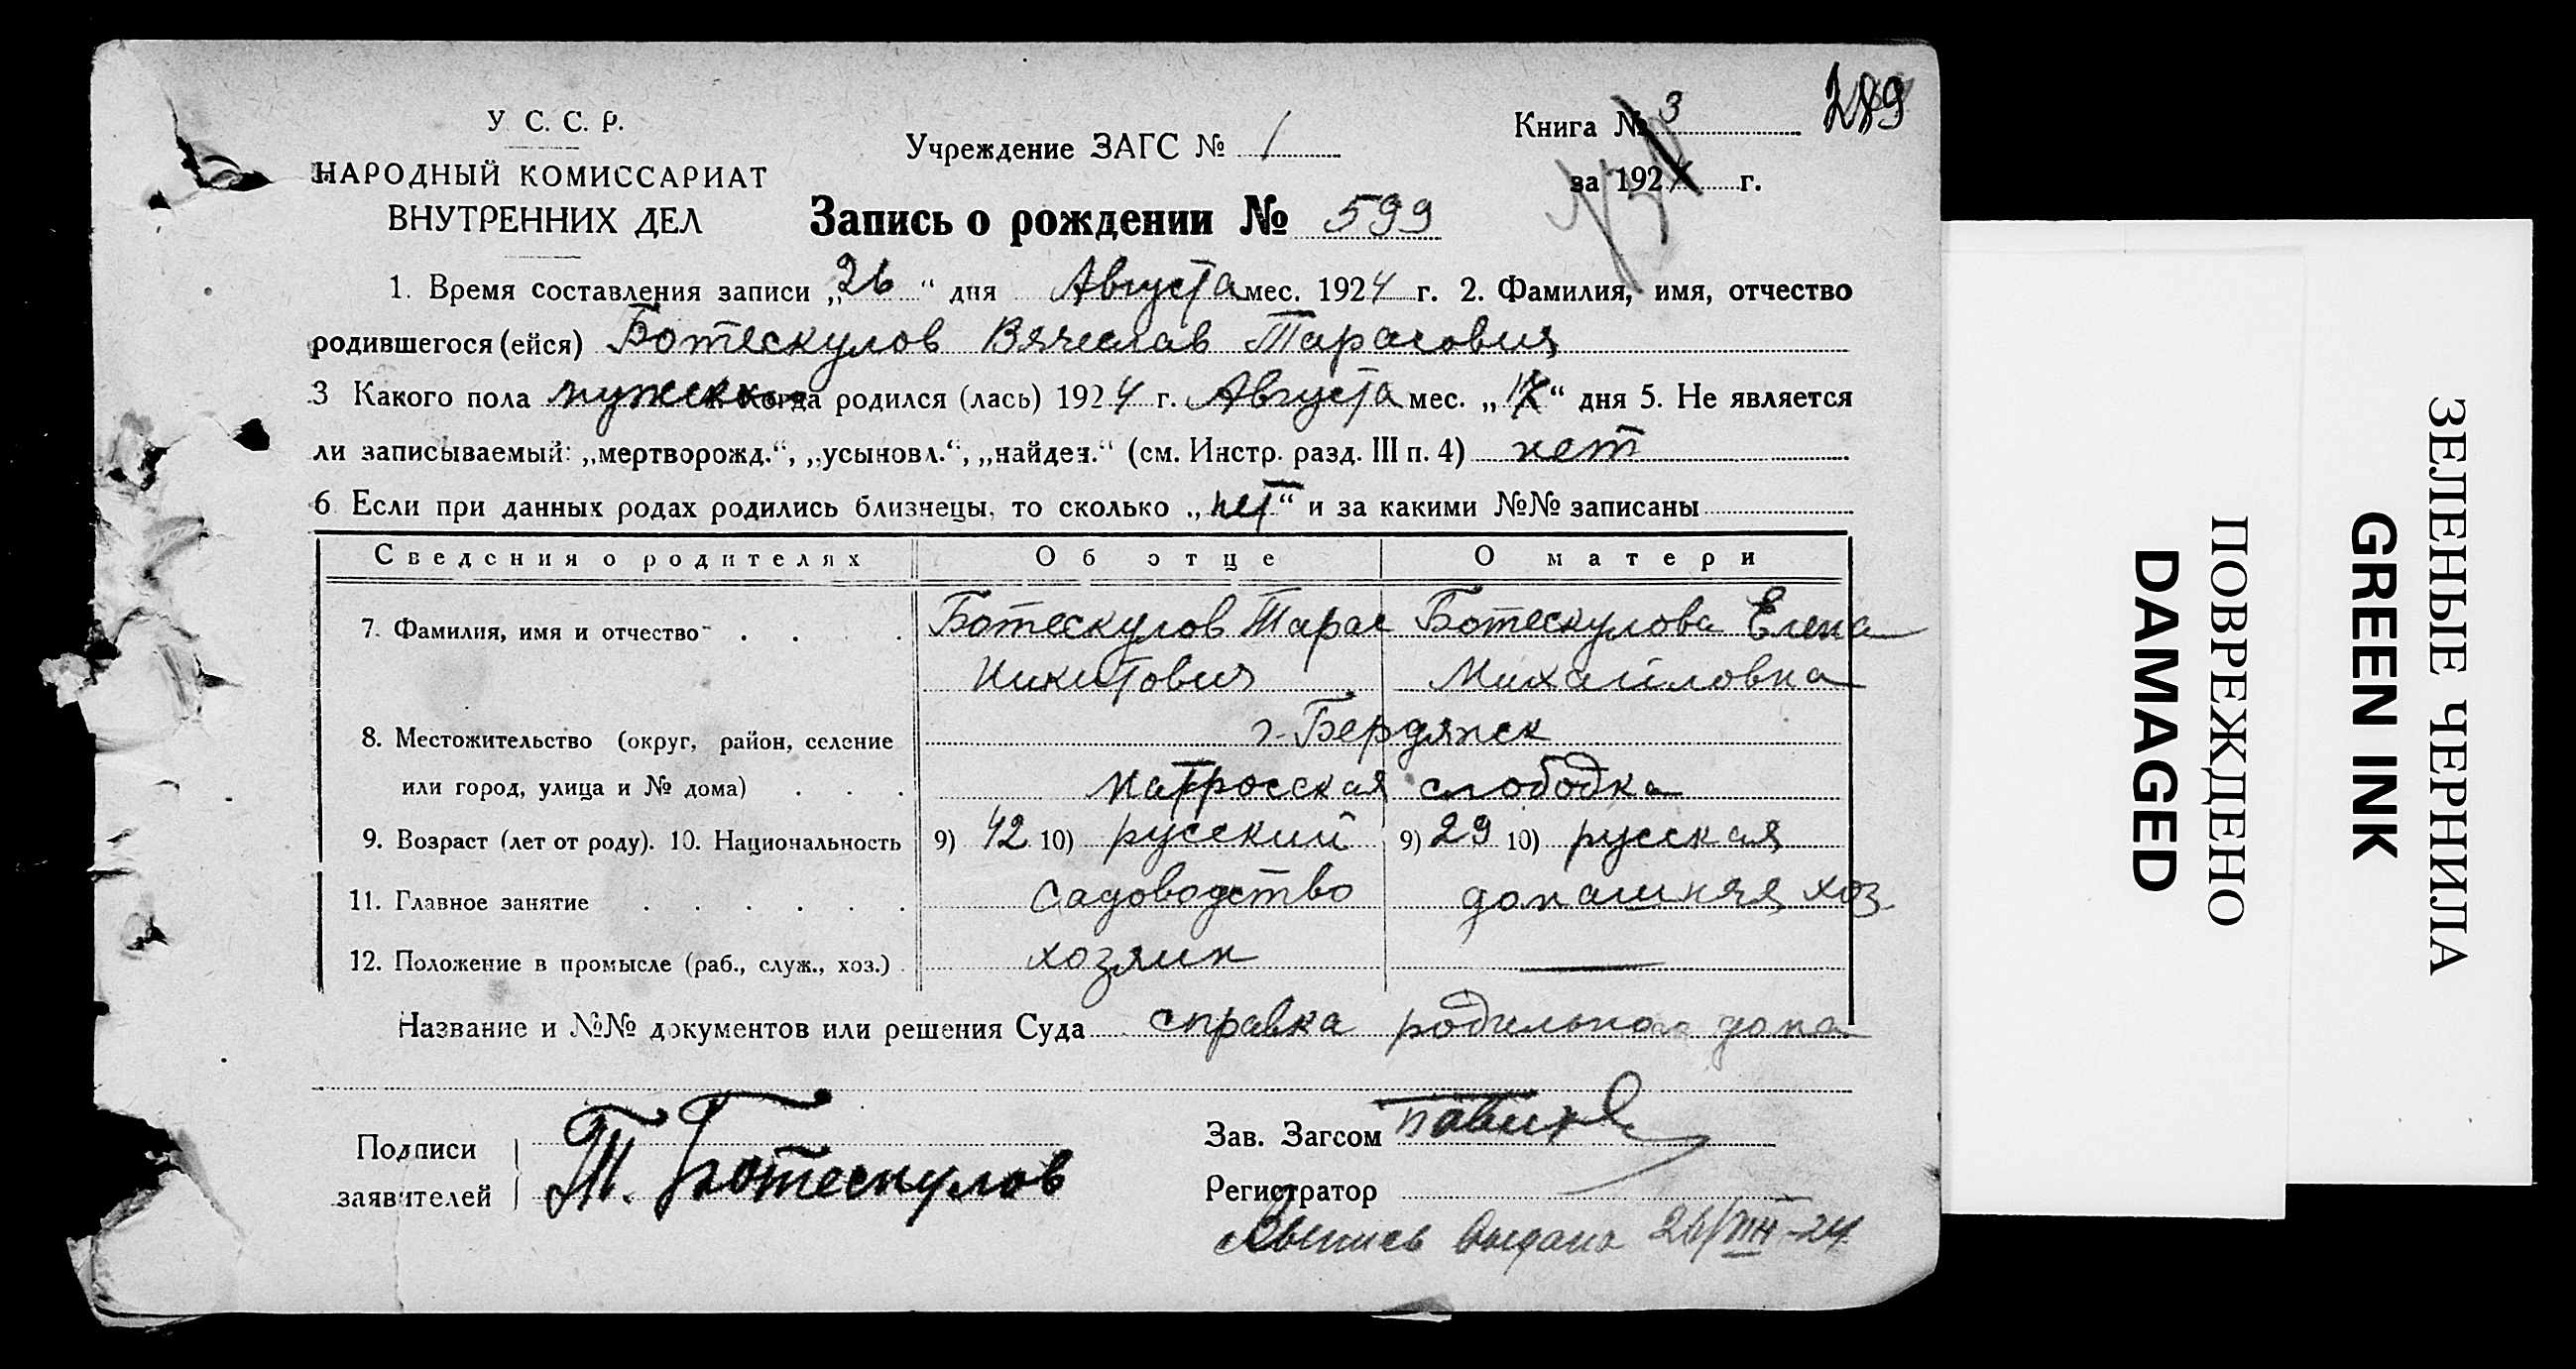 У. С. С. Р.
НАРОДНЫЙ КОМИССАРИАТ
ВНУТРЕННИХ ДЕЛ
Учреждение ЗАГС № 1
Книга № 3
289
за 192 г.
Запись о рождении № 599
1. Время составления записи „26“ дня Августа мес. 1924 г. 2. Фамилия, имя, отчество
родившегося (ейся) Ботескулов Вячеслав Тарасович
3 Какого пола мужск 4. Когда родился (лась) 1924 г. Августа мес. „ “ дня 5. Не является
ли записываемый: „мертворожд.“, „усыновл.“, „найден.“ (см. Инстр. разд. III п. 4) нет
6 Если при данных родах родились близнецы, то сколько „нет“ и за какими №№ записаны
Сведения о родителях Об отце О матери
7. Фамилия, имя и отчество Ботескулов Тарас Ботескулова Елена
Никитович Михайловна
8. Местожительство (округ, район, селение г. Бердянск
или город, улица и № дома) Матросская слободка
9. Возраст (лет от роду). 10. Национальность 9) 42 10) русский 9) 29 10) русская
11. Главное занятие Садоводство домашняя хоз.
12. Положение в промысле (раб., служ., хоз.) хозяин —
Название и №№ документов или решения Суда справка родильного дома
Подписи
заявителей
Т. Ботескулов
Зав. Загсом
Регистратор
Выпись выдана 26/VIII-24
ПОВРЕЖДЕНО
DAMAGED
ЗЕЛЕНЫЕ ЧЕРНИЛА
GREEN INK